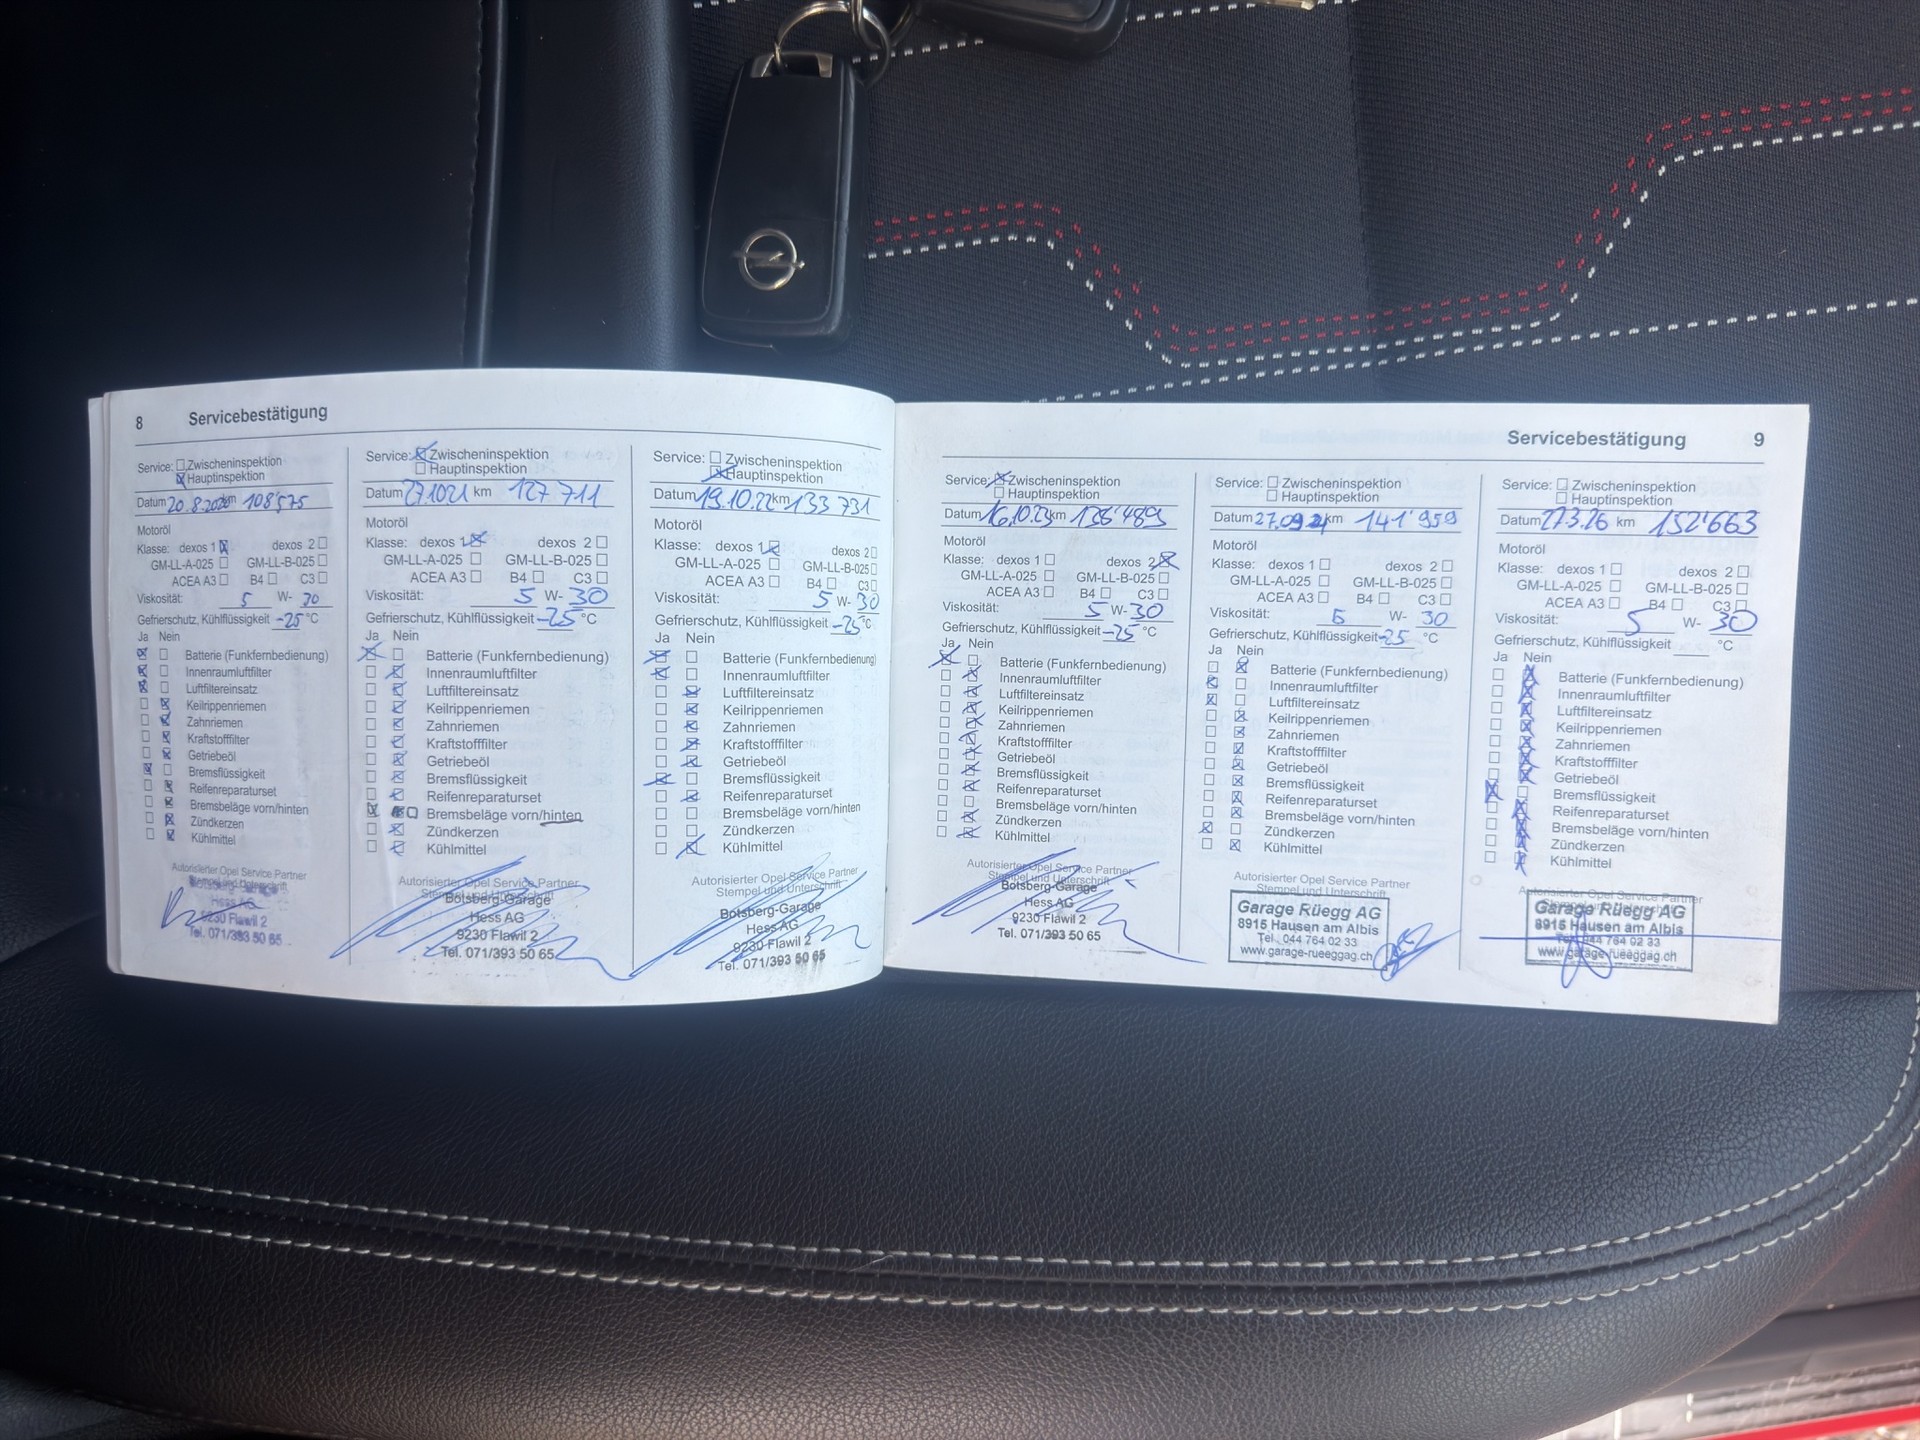 8 Servicebestätigung
Service: Zwischeninspektion
Hauptinspektion
Datum 20.8.2020 km 108'575
Motoröl
Klasse: dexos 1 dexos 2
GM-LL-A-025 GM-LL-B-025
ACEA A3 B4 C3
Viskosität: 5 W- 30
Gefrierschutz, Kühlflüssigkeit -25 °C
Ja Nein
Batterie (Funkfernbedienung)
Innenraumluftfilter
Luftfiltereinsatz
Keilrippenriemen
Zahnriemen
Kraftstofffilter
Getriebeöl
Bremsflüssigkeit
Reifenreparaturset
Bremsbeläge vorn/hinten
Zündkerzen
Kühlmittel
Autorisierter Opel Service Partner
Stempel und Unterschrift
Hess AG
9230 Flawil 2
Tel. 071/393 50 65
Service: Zwischeninspektion
Hauptinspektion
Datum 271021 km 127 711
Motoröl
Klasse: dexos 1 dexos 2
GM-LL-A-025 GM-LL-B-025
ACEA A3 B4 C3
Viskosität: 5 W- 30
Gefrierschutz, Kühlflüssigkeit -25 °C
Ja Nein
Batterie (Funkfernbedienung)
Innenraumluftfilter
Luftfiltereinsatz
Keilrippenriemen
Zahnriemen
Kraftstofffilter
Getriebeöl
Bremsflüssigkeit
Reifenreparaturset
Bremsbeläge vorn/hinten
Zündkerzen
Kühlmittel
Autorisierter Opel Service Partner
Stempel und Unterschrift
Botsberg-Garage
Hess AG
9230 Flawil 2
Tel. 071/393 50 65
Service: Zwischeninspektion
Hauptinspektion
Datum 19.10.22 km 133 731
Motoröl
Klasse: dexos 1 dexos 2
GM-LL-A-025 GM-LL-B-025
ACEA A3 B4 C3
Viskosität: 5 W- 30
Gefrierschutz, Kühlflüssigkeit -25 °C
Ja Nein
Batterie (Funkfernbedienung)
Innenraumluftfilter
Luftfiltereinsatz
Keilrippenriemen
Zahnriemen
Kraftstofffilter
Getriebeöl
Bremsflüssigkeit
Reifenreparaturset
Bremsbeläge vorn/hinten
Zündkerzen
Kühlmittel
Autorisierter Opel Service Partner
Stempel und Unterschrift
Botsberg-Garage
Hess AG
9230 Flawil 2
Tel. 071/393 50 65
Servicebestätigung 9
Service: Zwischeninspektion
Hauptinspektion
Datum 16.10.23 km 136'489
Motoröl
Klasse: dexos 1 dexos 2
GM-LL-A-025 GM-LL-B-025
ACEA A3 B4 C3
Viskosität: 5 W- 30
Gefrierschutz, Kühlflüssigkeit -25 °C
Ja Nein
Batterie (Funkfernbedienung)
Innenraumluftfilter
Luftfiltereinsatz
Keilrippenriemen
Zahnriemen
Kraftstofffilter
Getriebeöl
Bremsflüssigkeit
Reifenreparaturset
Bremsbeläge vorn/hinten
Zündkerzen
Kühlmittel
Autorisierter Opel Service Partner
Stempel und Unterschrift
Botsberg-Garage
Hess AG
9230 Flawil 2
Tel. 071/393 50 65
Service: Zwischeninspektion
Hauptinspektion
Datum 27.09 24 km 141'959
Motoröl
Klasse: dexos 1 dexos 2
GM-LL-A-025 GM-LL-B-025
ACEA A3 B4 C3
Viskosität: 5 W- 30
Gefrierschutz, Kühlflüssigkeit -25 °C
Ja Nein
Batterie (Funkfernbedienung)
Innenraumluftfilter
Luftfiltereinsatz
Keilrippenriemen
Zahnriemen
Kraftstofffilter
Getriebeöl
Bremsflüssigkeit
Reifenreparaturset
Bremsbeläge vorn/hinten
Zündkerzen
Kühlmittel
Autorisierter Opel Service Partner
Stempel und Unterschrift
Garage Rüegg AG
8915 Hausen am Albis
Tel. 044 764 02 33
www.garage-rueeggag.ch
Service: Zwischeninspektion
Hauptinspektion
Datum 27.3.26 km 152'663
Motoröl
Klasse: dexos 1 dexos 2
GM-LL-A-025 GM-LL-B-025
ACEA A3 B4 C3
Viskosität: 5 W- 30
Gefrierschutz, Kühlflüssigkeit °C
Ja Nein
Batterie (Funkfernbedienung)
Innenraumluftfilter
Luftfiltereinsatz
Keilrippenriemen
Zahnriemen
Kraftstofffilter
Getriebeöl
Bremsflüssigkeit
Reifenreparaturset
Bremsbeläge vorn/hinten
Zündkerzen
Kühlmittel
Autorisierter Opel Service Partner
Garage Rüegg AG
8915 Hausen am Albis
Tel. 044 764 02 33
www.garage-rueeggag.ch